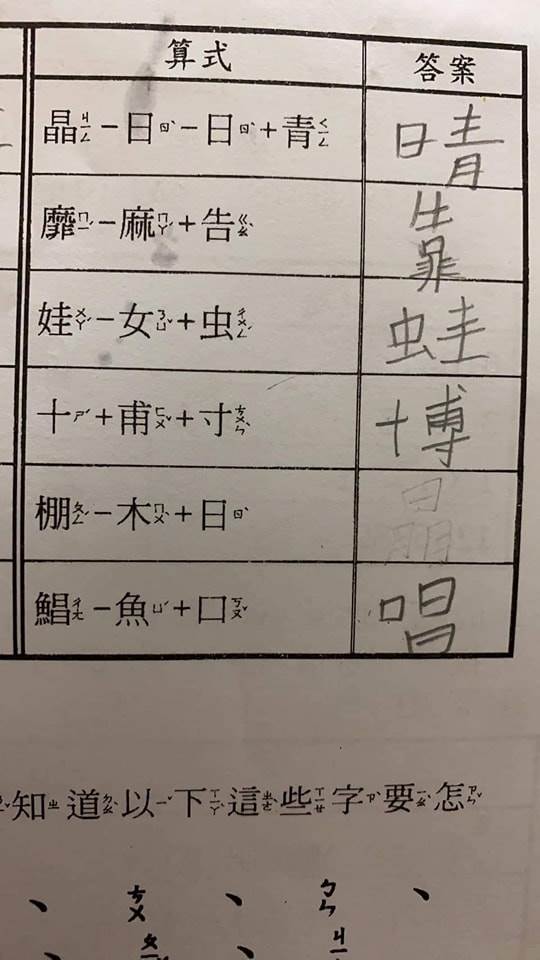 算式 答案
晶ㄐㄧㄥ－日ㄖˋ－日ㄖˋ＋青ㄑㄧㄥ 晴
靡ㄇㄧˊ－麻ㄇㄚˊ＋告ㄍㄠˋ 靠
娃ㄨㄚˊ－女ㄋㄩˇ＋虫ㄔㄨㄥˊ 蛙
十ㄕˊ＋甫ㄈㄨˇ＋寸ㄘㄨㄣˋ 博
棚ㄆㄥˊ－木ㄇㄨˋ＋日ㄖˋ
鯧ㄔㄤ－魚ㄩˊ＋口ㄎㄡˇ 唱
知ㄓ道ㄉㄠˋ以ㄧˇ下ㄒㄧㄚˋ這ㄓㄜˋ些ㄒㄧㄝ字ㄗˋ要ㄧㄠˋ怎ㄗㄣˇ
、ㄘㄨ、ㄅㄣ、